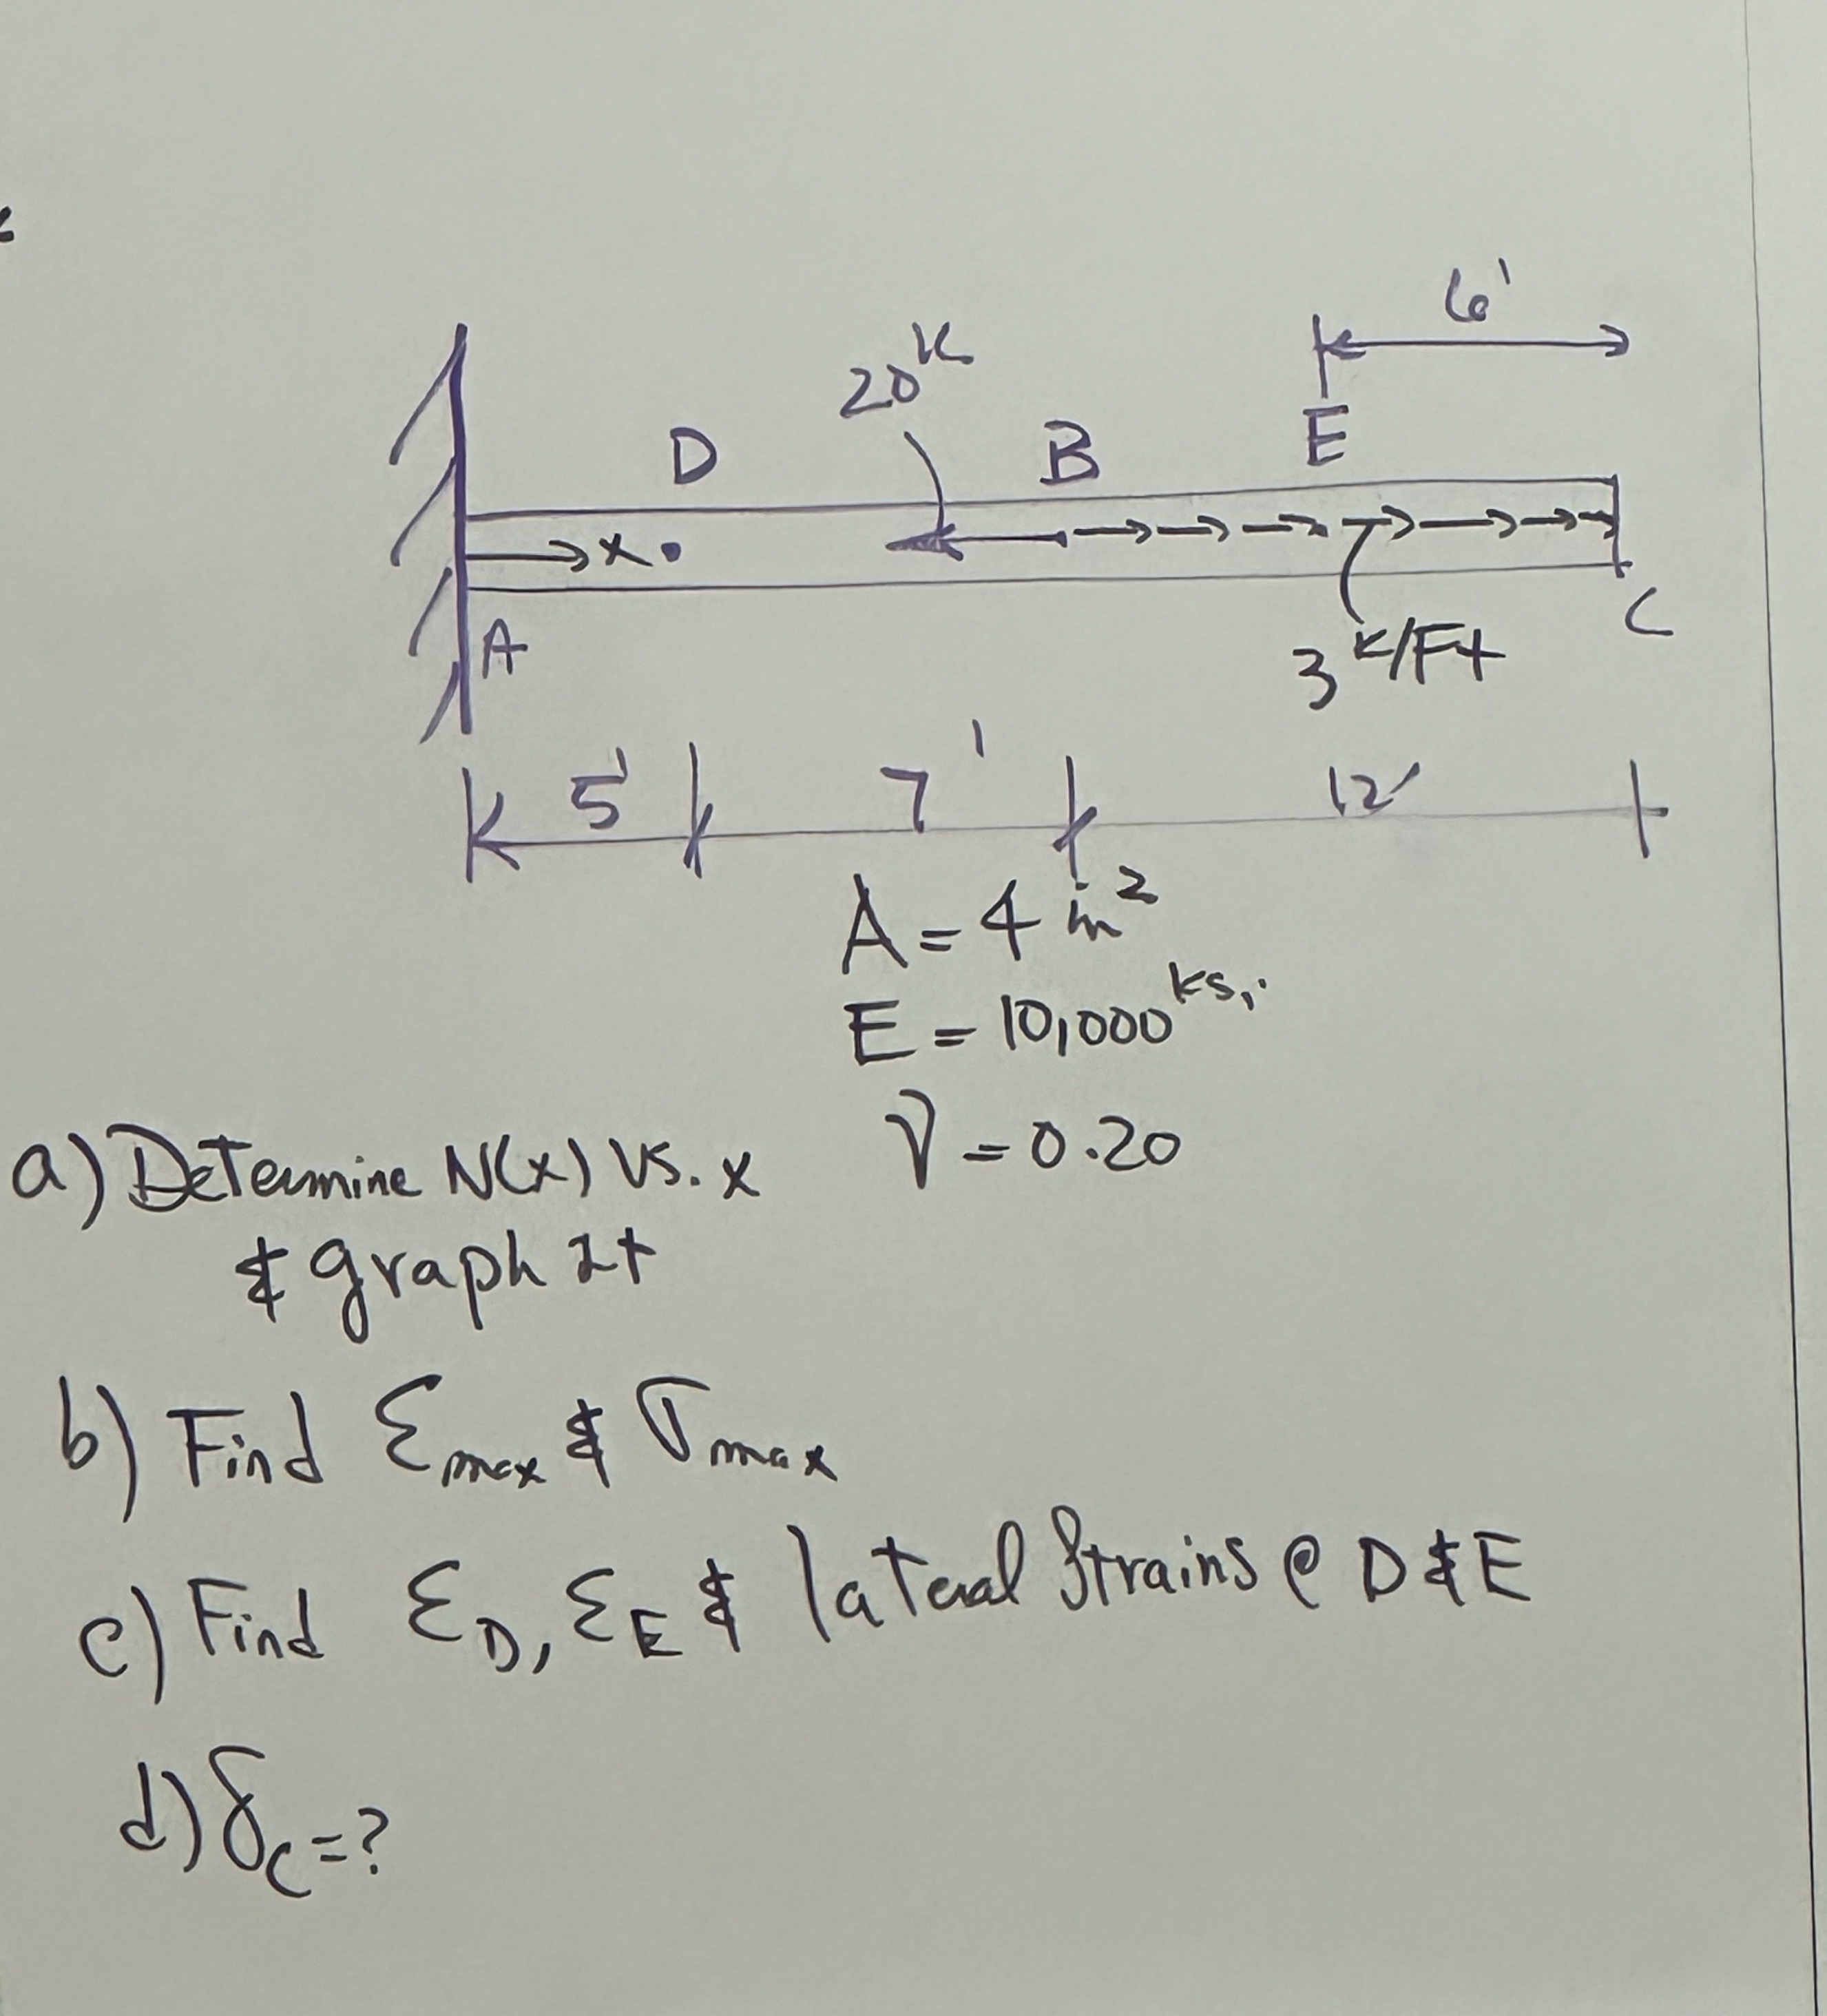 6'
20ᴷ
D
B
E
x
A
C
3 ᴷ/Ft
5'
7'
12'
A = 4 in²
E = 10,000 ksi
ν = 0.20
a) Determine N(x) vs. x
& graph it
b) Find Ɛmax & σmax
c) Find ƐD, ƐE & lateral strains @ D & E
d) δC = ?